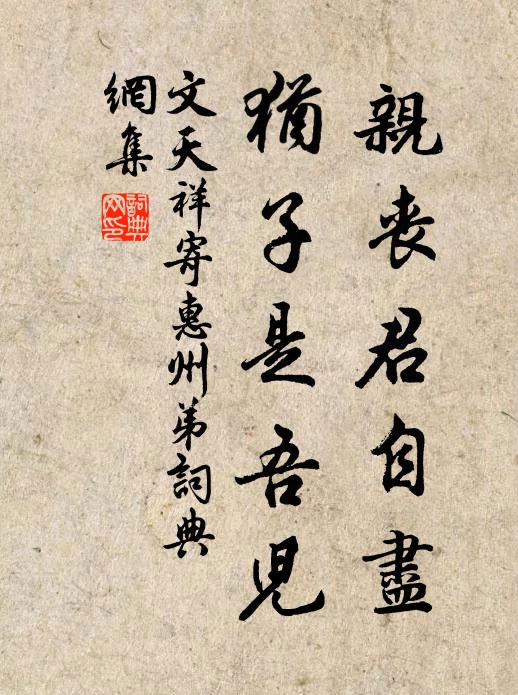 親喪君自盡
猶子是吾兒
文天祥寄惠州弟詞典
網集
詞典網印